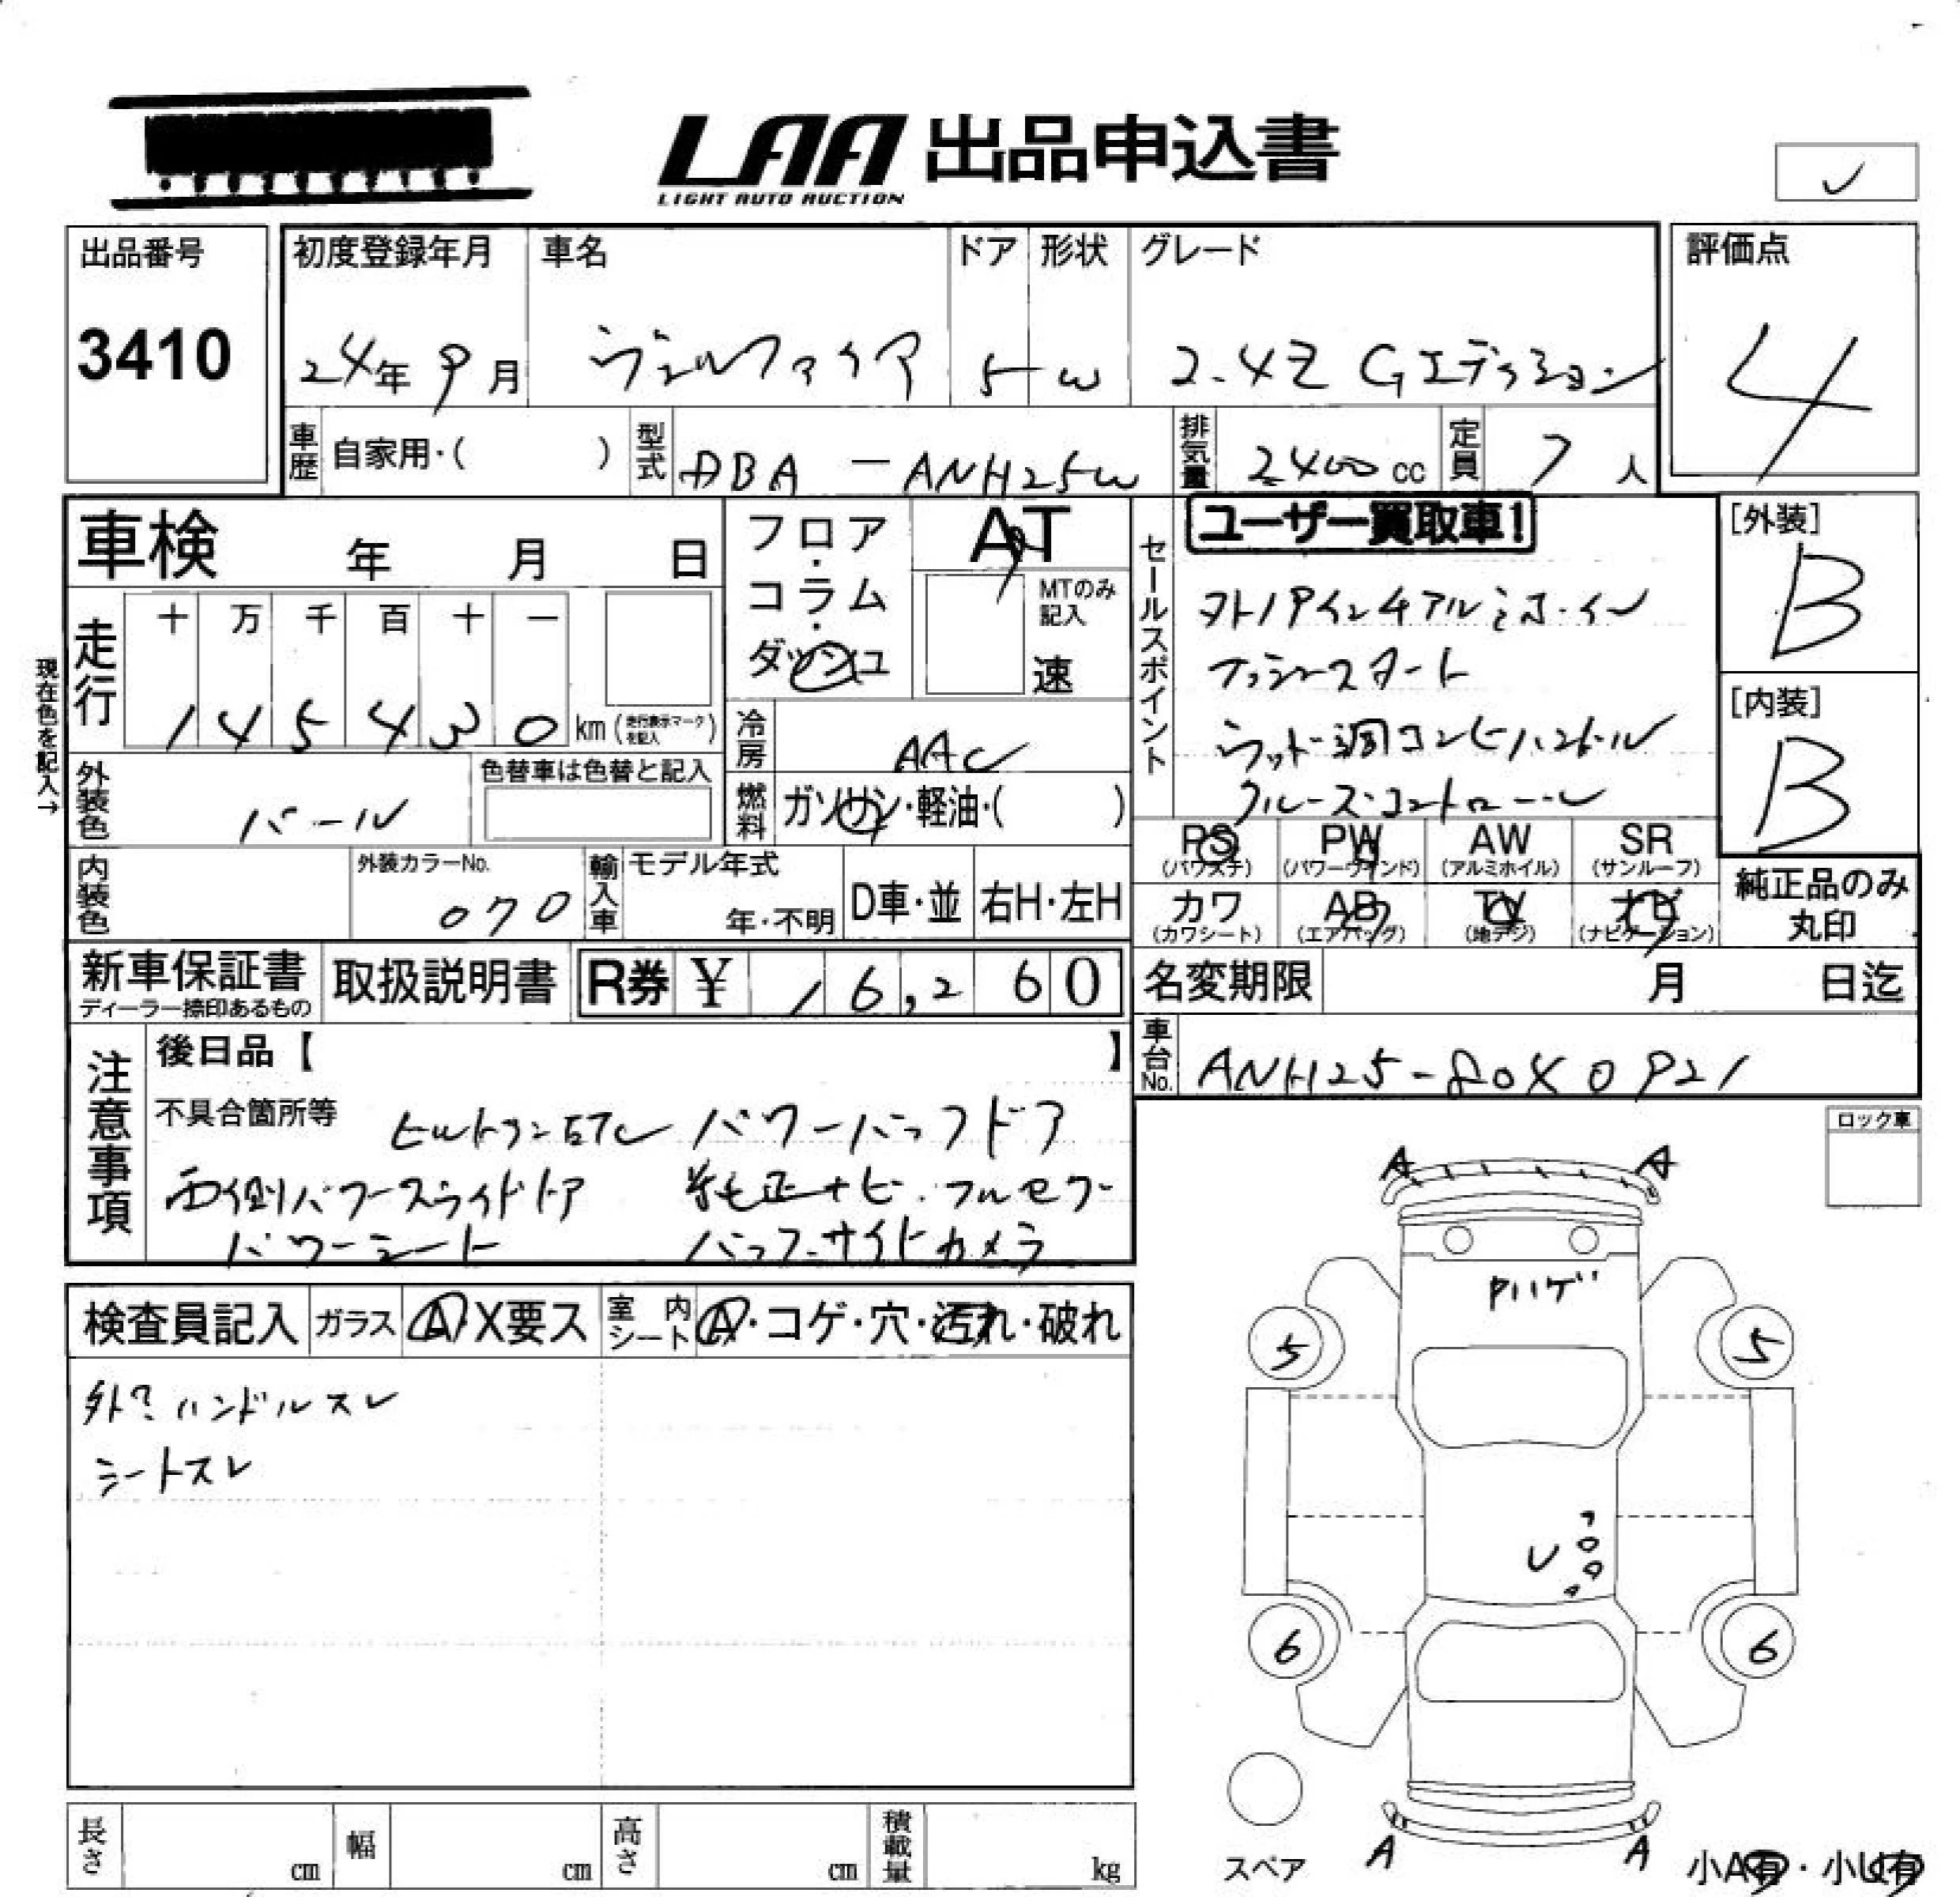 LAA 出品申込書
LIGHT AUTO AUCTION
出品番号
3410
初度登録年月
24年 9月
車名
ヴェルファイア
ドア
5
形状
W
グレード
2.4Z Gエディション
評価点
4
車歴 自家用・( )
型式 DBA - ANH25W
排気量 2400 cc
定員 7 人
車検 年 月 日
フロア・コラム・ダッシュ
AT
MTのみ記入
速
現在色を記入→
走行
十 万 千 百 十 一
1 4 5 4 3 0 km (走行表示マークを記入)
冷房 AAC
燃料 ガソリン・軽油・( )
外装色 パール
色替車は色替と記入
内装色
外装カラーNo. 070
輸入車 モデル年式
年・不明
D車・並
右H・左H
新車保証書
ディーラー捺印あるもの
取扱説明書
R券 ¥ 16,260
セールスポイント
ユーザー買取車!
プッシュスタート
ウッド調コンビハンドル
クルーズコントロール
[外装]
B
[内装]
B
PS (パワステ)
PW (パワーウィンド)
AW (アルミホイル)
SR (サンルーフ)
カワ (カワシート)
AB (エアバッグ)
TV (地デジ)
ナビ (ナビゲーション)
純正品のみ丸印
名変期限 月 日迄
車台No. ANH25-8040921
注意事項
後日品【 】
不具合箇所等
ビルトインETC パワーバックドア
両側パワースライドドア 純正ナビ.フルセグ
パワーシート バック・サイドカメラ
ロック車
検査員記入
ガラス A X要ス
室内シート A・コゲ・穴・汚れ・破れ
ハンドルスレ
シートスレ
A A
ハゲ
5 5
U
6 6
スペア
A A
小A有・小U有
長さ cm
幅 cm
高さ cm
積載量 kg